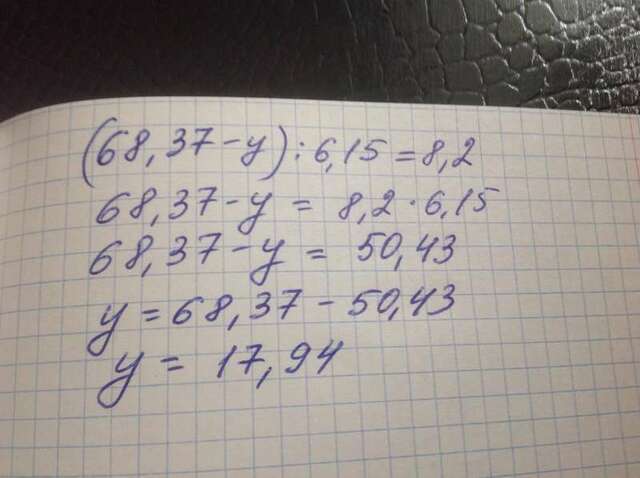 (68,37-y):6,15=8,2
68,37-y = 8,2·6,15
68,37-y = 50,43
y=68,37-50,43
y = 17,94